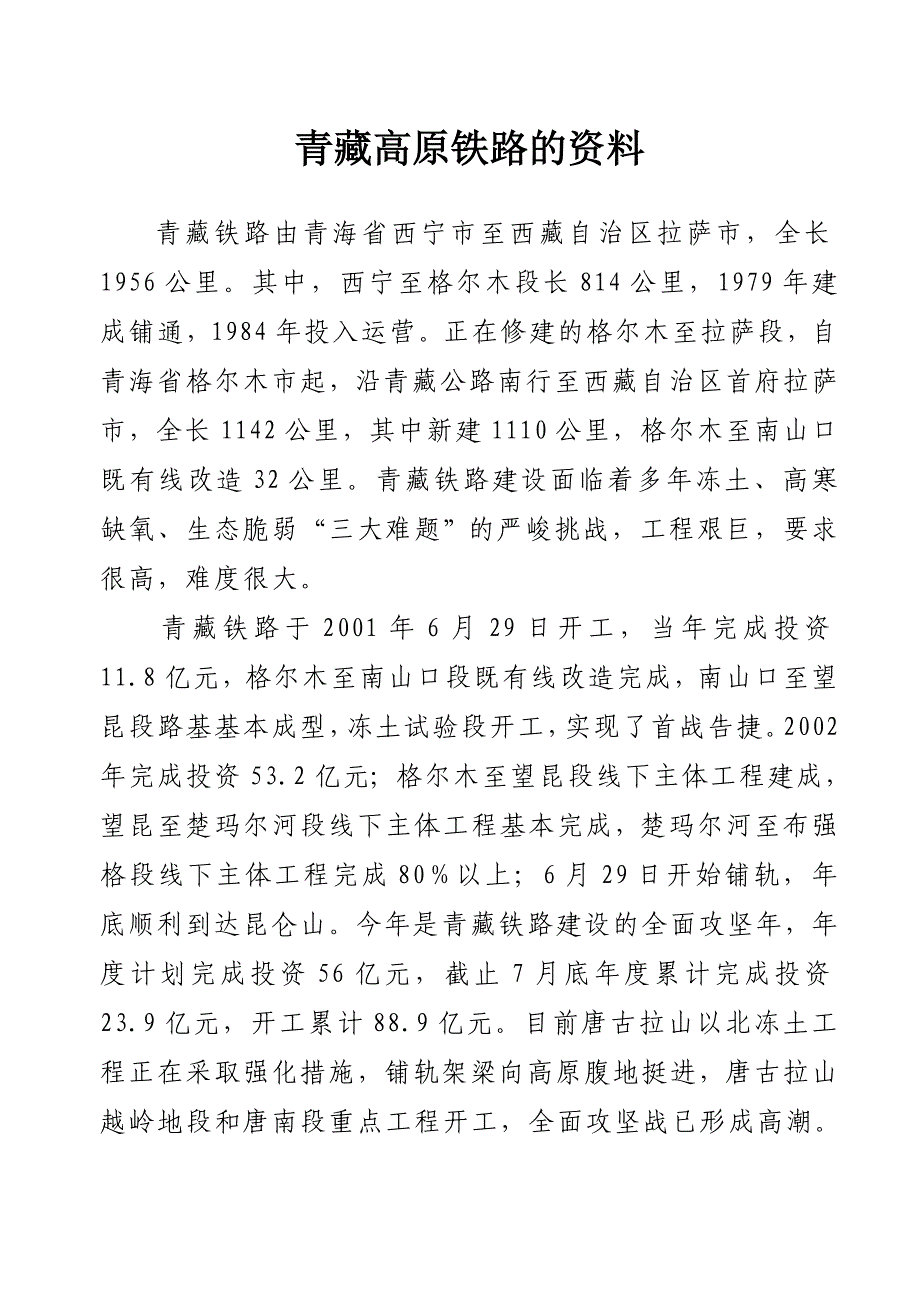 青藏高原铁路的资料
青藏铁路由青海省西宁市至西藏自治区拉萨市，全长
1956 公里。其中，西宁至格尔木段长 814 公里，1979 年建
成铺通，1984 年投入运营。正在修建的格尔木至拉萨段，自
青海省格尔木市起，沿青藏公路南行至西藏自治区首府拉萨
市，全长 1142 公里，其中新建 1110 公里，格尔木至南山口
既有线改造 32 公里。青藏铁路建设面临着多年冻土、高寒
缺氧、生态脆弱“三大难题”的严峻挑战，工程艰巨，要求
很高，难度很大。
青藏铁路于 2001 年 6 月 29 日开工，当年完成投资
11.8 亿元，格尔木至南山口段既有线改造完成，南山口至望
昆段路基基本成型，冻土试验段开工，实现了首战告捷。2002
年完成投资 53.2 亿元；格尔木至望昆段线下主体工程建成，
望昆至楚玛尔河段线下主体工程基本完成，楚玛尔河至布强
格段线下主体工程完成 80%以上；6 月 29 日开始铺轨，年
底顺利到达昆仑山。今年是青藏铁路建设的全面攻坚年，年
度计划完成投资 56 亿元，截止 7 月底年度累计完成投资
23.9 亿元，开工累计 88.9 亿元。目前唐古拉山以北冻土工
程正在采取强化措施，铺轨架梁向高原腹地挺进，唐古拉山
越岭地段和唐南段重点工程开工，全面攻坚战已形成高潮。